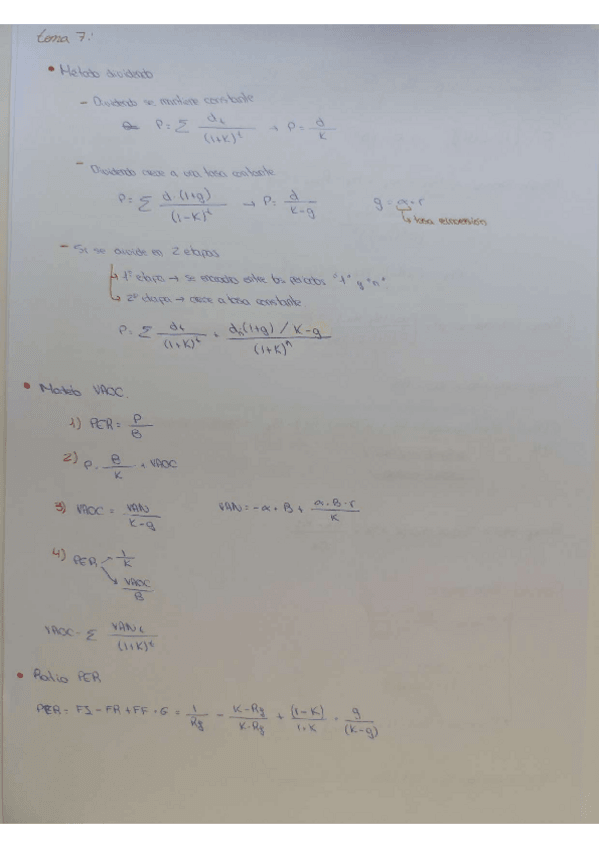 tema 7:
• Metodo dividendo
– Dividendo se mantiene constante
P = Σ d_t / (1+K)^t → P = d / K
– Dividendo crece a una tasa constante
P = Σ d · (1+g) / (1-K)^t → P = d / K-g g = a · r
↳ tasa retención
– Si se divide en 2 etapas
1ª etapa → se encuadra entre los periodos "1" y "n"
2ª etapa → crece a tasa constante
P = Σ d_t / (1+K)^t + d_n(1+g) / K-g / (1+K)^n
• Modelo VAOC
1) PER = P / B
2) P = B / K + VAOC
3) VAOC = VAN / K-g VAN = -a · B + a · B · r / K
4) PER → 1 / K
→ VAOC / B
VAOC = Σ VAN_t / (1+K)^t
• Ratio PER
PER = FI - FR + FF · G = 1 / Rf - K-Rf / K·Rf + (1-K) / 1·K · g / (K-g)